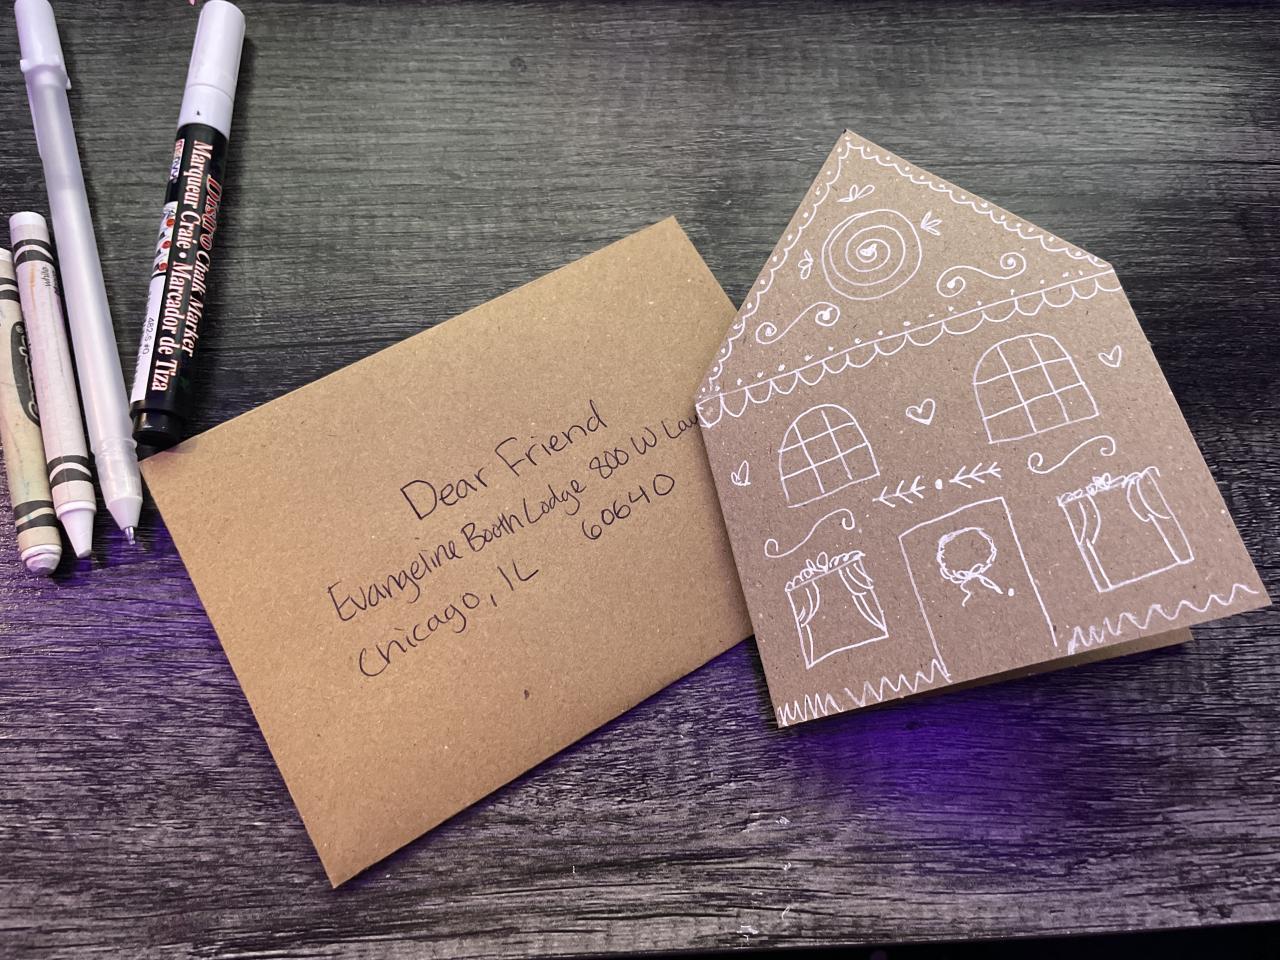 Dear Friend
Evangeline Booth Lodge 800 W Law
Chicago, IL 60640
Bistro Chalk Marker
Marqueur Craie • Marcador de Tiza
482-S